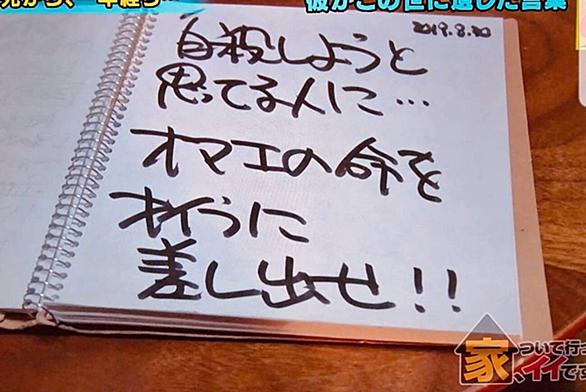 彼がこの世に遺した言葉
2019.8.30
自殺しようと
思ってる人に…
オマエの命を
オイラに
差し出せ!!
家、ついて行って
イイですか